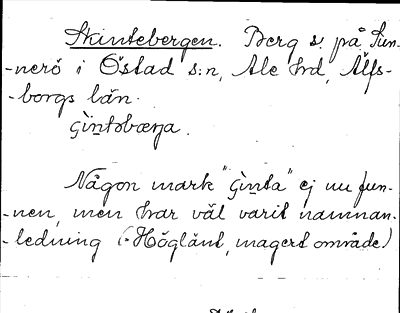 Skintebergen. Berg s. på Sun-
-nerö i Östad s:n, Ale hrd, Älfs-
-borgs län.
Någon mark "ġinta" ej nu fun-
-nen, men har väl varit namnan-
-ledning (: Högländt, magert område)